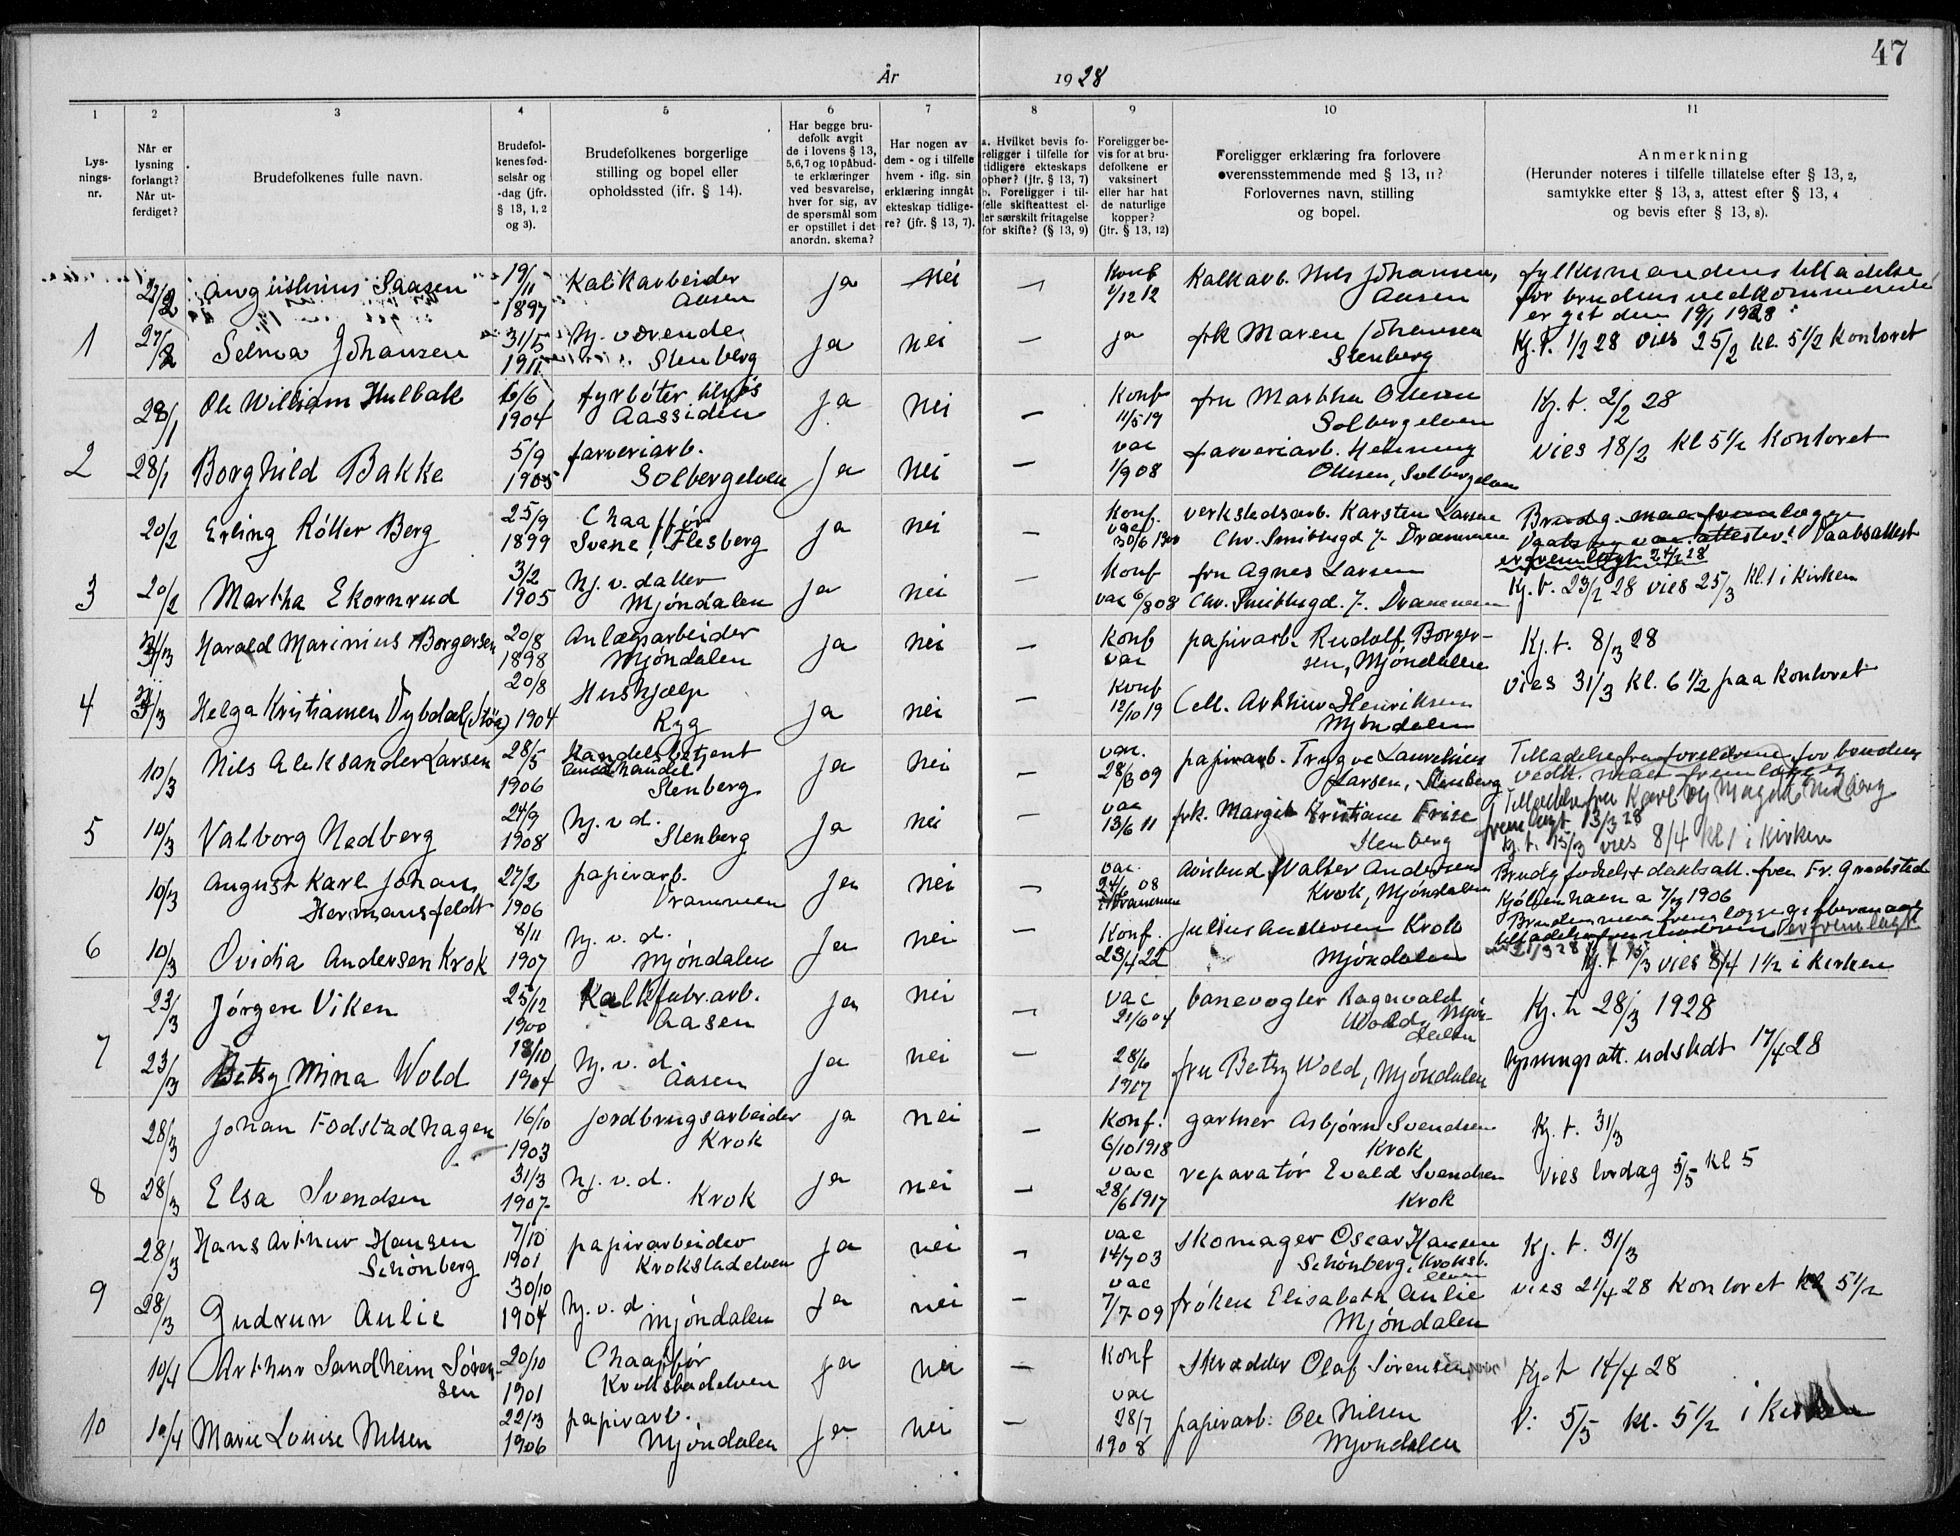 47
År 1928
1 2 3 4 5 6 7 8 9 10 11
Lysningsnr.
Når er lysning forlangt? Når utferdiget?
Brudefolkenes fulle navn.
Brudefolkenes fødselsår og -dag (jfr. § 13, 1, 2 og 3).
Brudefolkenes borgerlige stilling og bopel eller opholdssted (ifr. § 14).
Har begge brudefolk avgit de i lovens § 13, 5,6,7 og 10 påbudte erklæringer ved besvarelse, hver for sig, av de spørsmål som er opstillet i det anordn. skema?
Har nogen av dem - og i tilfelle hvem - iflg. sin erklæring inngått ekteskap tidligere? (jfr. § 13, 7).
a. Hvilket bevis foreligger i tilfelle for tidligere ekteskaps ophør? (jfr. § 13, 7) b. Foreligger i tilfelle skifteattest eller særskilt fritagelse for skifte? (§ 13, 9)
Foreligger bevis for at brudefolkene er vaksinert eller har hat de naturlige kopper? (jfr. § 13, 12)
Foreligger erklæring fra forlovere overensstemmende med § 13, 11? Forlovernes navn, stilling og bopel.
Anmerkning
(Herunder noteres i tilfelle tillatelse efter § 13, 2, samtykke efter § 13, 3, attest efter § 13, 4 og bevis efter § 13, 8).
Saasen 19/11 1897 Kalkarbeider Aasen ja nei — Konf 1/12 12 Kalkarb. Nils Johansen, Aasen
fylkesmandens tilladelse for brudens vedkommende er git den 19/1 1928
1 Selma Johansen 31/5 1911 Hj. værende Stenberg ja nei — ja frk Maren Johansen Stenberg
Kj. t. 1/2 28 vies 25/2 kl. 5 1/2 Kontoret
28/1 Ole William Hulbak 6/6 1904 fyrbøter Aassiden ja nei — Konf 11/5 19 fru Martha Ollesen Solbergelven
Kj. t. 2/2 28
2 28/1 Borghild Bakke 5/9 1905 farveriarb. Solbergelven ja nei — vac 1/9 08 farveriarb. Henning Ollesen, Solbergelven
vies 18/2 kl 5 1/2 Kontoret
20/2 Erling Rötter Berg 25/9 1899 Chauffør Svene, Flesberg ja nei — Konf. vac 30/6 1900 verkstedsarb. Karsten Larsen Chr. Smithsgd 7. Drammen
Brudg. maa fremlægge Daabs og vac. attest. Daabsattest er fremlagt 24/2 28
3 20/2 Martha Ekornrud 3/2 1905 Hj. v. datter Mjøndalen ja nei — Konf vac 6/8 08 fru Agnes Larsen Chr. Smithsgd. 7. Drammen
Kj. t. 23/2 28 vies 25/3 kl. 1 i Kirken
Harald Marinius Borgersen 20/8 1898 Anlægsarbeider Mjøndalen ja nei — Konf vac papirarb. Rudolf Borgersen, Mjøndalen
Kj. t. 8/3 28
4 Helga Kristiansen Dybdal (Støa) 20/8 1904 Hushjælp Ryg ja nei — Konf 12/10 19 Arthur Henriksen Mjøndalen
vies 31/3 kl. 6 1/2 paa Kontoret
10/3 Nils Aleksander Larsen 28/5 1906 Handelsbetjent Stenberg ja nei — vac. 28/6 09 papirarb. Trygve Laurentius Larsen, Stenberg
Tilladelse fra forældrene for brudens vedk. maa fremlægges
5 10/3 Valborg Nedberg 24/9 1908 Hj. v. d. Stenberg ja nei — vac 13/6 11 frk. Margit Kristiane Friise Stenberg
Tilladelse fra Karl og Magda Nedberg fremlagt 13/3 28
Kj. t. 15/3 vies 8/4 kl 1 i Kirken
10/3 August Karl Johan Hermansfeldt 27/2 1906 papirarb. Drammen ja nei — vac. 24/6 08 i Drammen Avisbud Walter Andersen Krok, Mjøndalen
Brudg fødsels + daabsatt. fra Fr. Grødsted Kjøbenhavn a 7/12 1906
6 10/3 Ovidia Andersen Krok 8/11 1907 Hj. v. d. Mjøndalen ja nei — Konf. 23/4 22 Julius Andersen Krok Mjøndalen
er fremlagt
Kj. t. 15/3 vies 8/4 1 1/2 i Kirken
23/3 Jørgen Viken 25/12 1900 Kalkfabr.arb. Aasen ja nei — vac 21/6 04 banevogter Ragnvald Wold, Mjøndalen
Kj. t. 28/3 1928
7 23/3 Betsy Mina Wold 18/10 1904 Hj. v. d. Aasen ja nei — 28/6 1917 fru Betsy Wold, Mjøndalen
lysningsatt. udstedt 17/4 28
28/3 Johan Fodstadhagen 16/10 1903 jordbrugsarbeider Krok ja nei — Konf. 6/10 1918 gartner Asbjørn Svendsen Krok
Kj. t. 31/3
8 28/3 Elsa Svendsen 31/3 1907 Hj. v. d. Krok ja nei — vac 28/6 1917 reparatør Evald Svendsen Krok
vies lørdag 5/5 kl 5
28/3 Hans Arthur Hansen Schønberg 7/10 1901 papirarbeider Krokstadelven ja nei — vac 14/7 03 Skomager Oscar Hansen Schønberg, Krokst.elven
Kj. t. 31/3
9 28/3 Gudrun Aulie 30/10 1904 Hj. v. d. Mjøndalen ja nei — vac 7/7 09 frøken Elisabeth Aulie Mjøndalen
vies 21/4 28 Kontoret kl 5 1/2
10/4 Arthur Sandheim Sørensen 20/10 1901 Chauffør Krokstadelven ja nei — Konf Skrædder Olaf Sørensen
Kj. t. 14/4 28
10 10/4 Marie Louise Nilsen 22/3 1906 papirarb. Mjøndalen ja nei — vac 28/7 1908 papirarb. Ole Nilsen Mjøndalen
V: 5/5 kl. 5 1/2 i Kirken